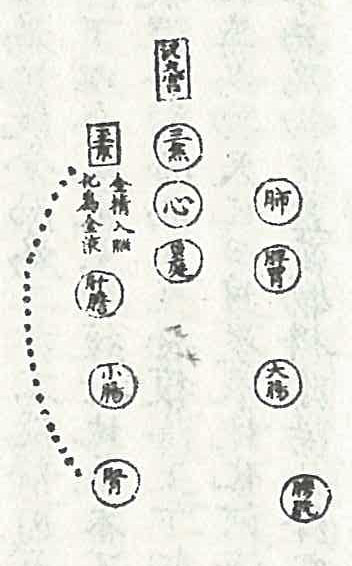 泥丸宮
肺
脾胃
大腸
膀胱
三焦
心
黃庭
金精入腦
化為金液
肝膽
小腸
腎